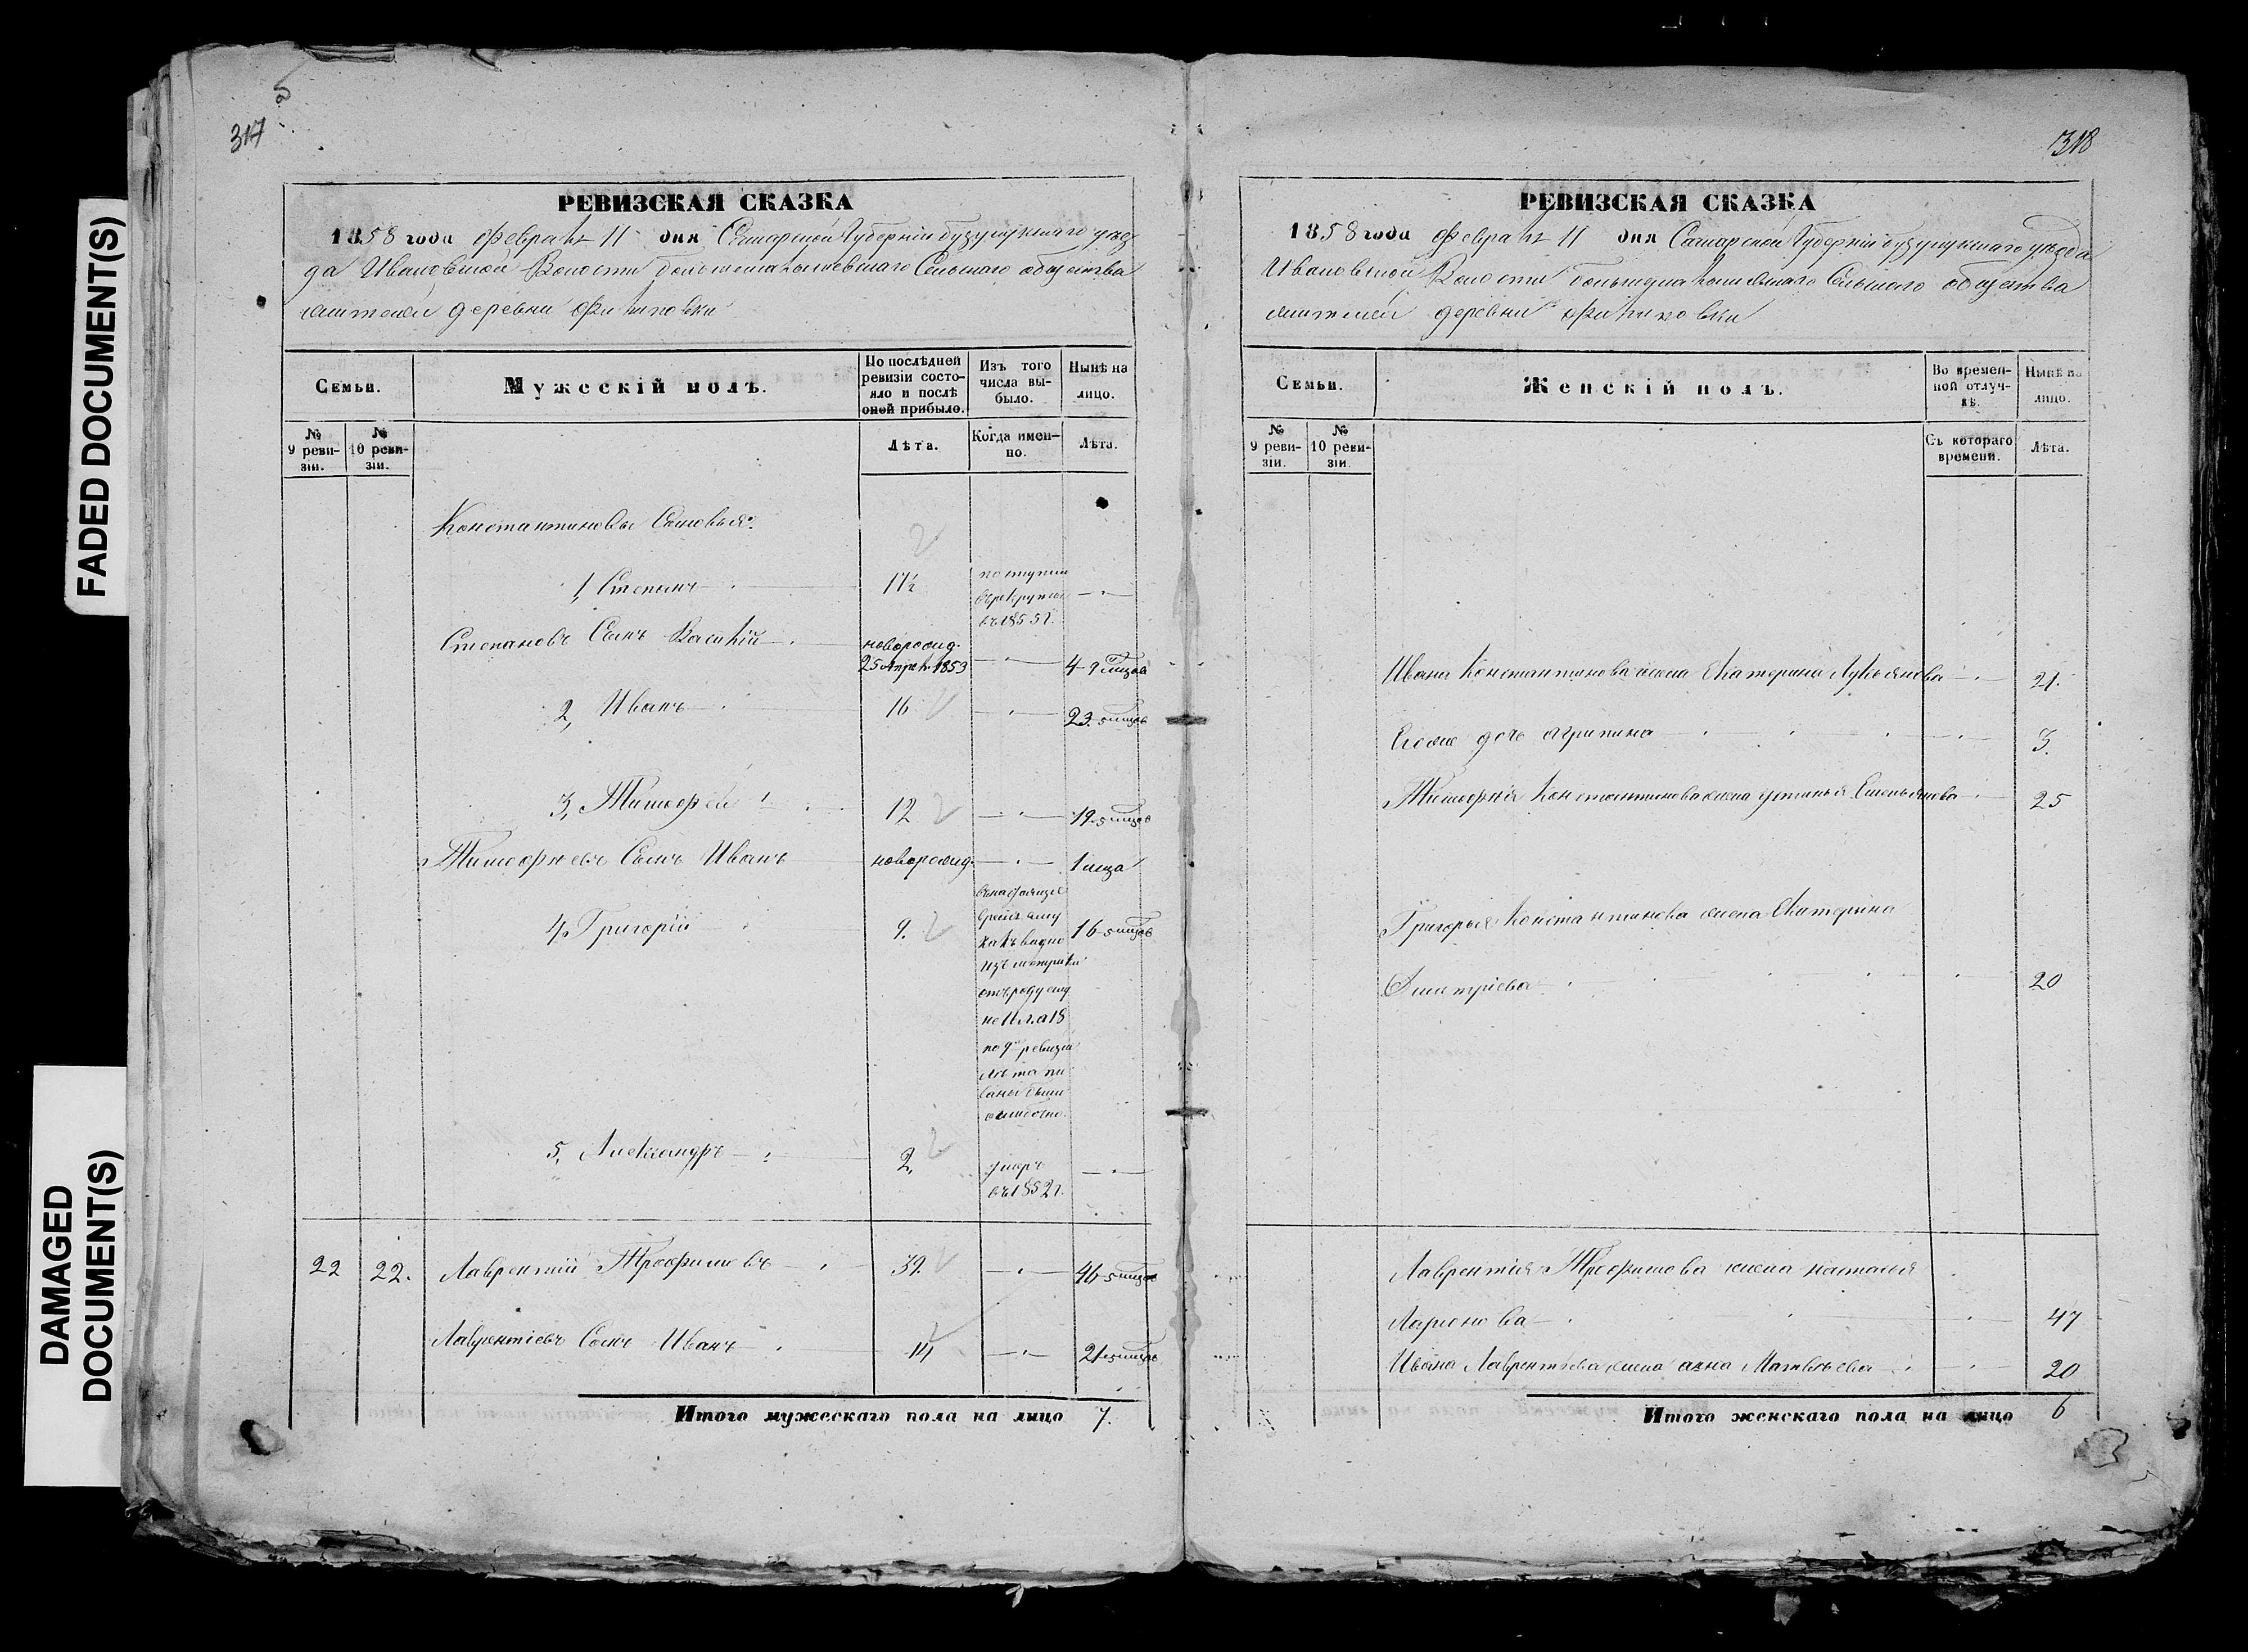 FADED DOCUMENT(S)
DAMAGED
DOCUMENT(S)
317
РЕВИЗСКАЯ СКАЗКА
1858 года февраля 11 дня Самарской Губерніи бузулукскаго уѣз
да Ивановской Волости Сельскаго общества
жителей деревни Филиповки
Семьи.
Мужескій полъ.
По послѣдней
ревизіи состо-
яло и послѣ
оной прибыло.
Изъ того
числа вы-
было.
Нынѣ на
лицо.
№
9 реви-
зіи.
№
10 реви-
зіи.
Лѣта.
Когда имен-
но.
Лѣта.
Константиновы Сыновья:
1, Степанъ 17½ поступил
в рекруты
въ 1855 г.
Степановъ Сынъ Василій новорожд.
25 Апрел. 1853 4 9 мцов
2, Иванъ 16 23. 5 мцов
3, Тимофей 12 19. 5 мцов
Тимофеевъ Сынъ Иванъ новорожд. 1 мца
4, Григорій 9. 16 5 мцов
въ настоящее
время ему
какъ видно
изъ метрики
отъ роду
не 11 л. а 18
по 9й ревизіи
лѣта пи
саны были
ошибочно.
5, Александръ 2, умеръ
въ 1852 г.
22 22. Лаврентій Трофимовъ 39. 46 5 мцов
Лаврентіевъ Сынъ Иванъ 14 21 5 мцов
Итого мужескаго пола на лицо 7.
318
РЕВИЗСКАЯ СКАЗКА
1858 года февраля 11 дня Самарской Губерніи бузулукскаго уѣзда
Ивановской Волости Сельскаго общества
жителей деревни Филиповки
Семьи.
Женскій полъ.
Во времен-
ной отлуч-
кѣ.
Нынѣ на
лицо.
№
9 реви-
зіи.
№
10 реви-
зіи.
Съ котораго
времени.
Лѣта.
Ивана Константинова жена Екатерина Лукьянова 21.
Егоже дочь агрипина 3.
Тимофея Константинова жена устинья Емельянова 25
Григорья Константинова жена Екатерина
Дмитріева 20
Лаврентія Трофимова жена наталья
Ларионова 47
Ивана Лаврентьева жена анна Матвѣева 20
Итого женскаго пола на лицо 6